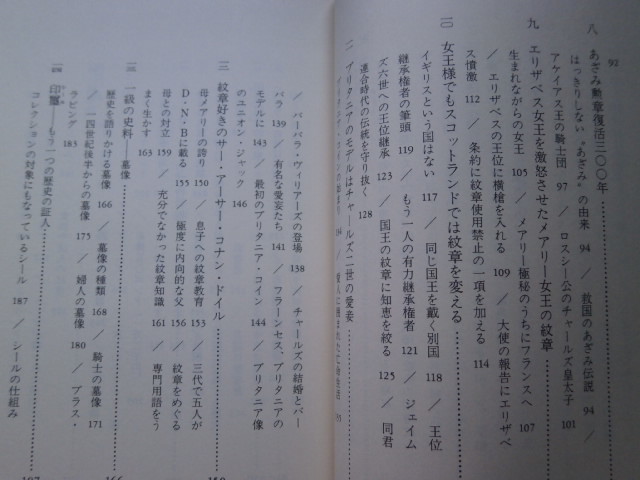 八 あざみ勲章復活三〇〇年
92
はっきりしない“あざみ”の由来 94 / 救国のあざみ伝説 94 /
アケイアス王の騎士団 97 / ロスシー公のチャールズ皇太子 101
九 エリザベス女王を激怒させたメアリー女王の紋章
生まれながらの女王 105 / メアリー極秘のうちにフランスへ 107
/ エリザベスの王位に横槍を入れる 109 / 大使の報告にエリザベ
ス憤激 112 / 条約に紋章使用禁止の一項を加える 114
一〇 女王様でもスコットランドでは紋章を変える
イギリスという国はない 117 / 同じ国王を戴く別国 118 / 王位
継承権者の筆頭 119 / もう一人の有力継承権者 121 / ジェイム
ズ六世への王位継承 123 / 国王の紋章に知恵を絞る 125 / 同君
連合時代の伝統を守り抜く 128
一一 ブリタニアのモデルはチャールズ二世の愛妾
/ バーバラ・ヴィリアーズの登場 138 / チャールズの結婚とバー
バラ 139 / 有名な愛妾たち 141 / フラーンセス、ブリタニアの
モデルに 143 / 最初のブリタニア・コイン 144 / ブリタニア像
のユニオン・ジャック 146
三 紋章好きのサー・アーサー・コナン・ドイル
150
母メアリーの誇り 150 / 息子への紋章教育 153 / 三代で五人が
D・N・Bに載る 155 / 極度に内向的な父 156 / 紋章をめぐる
母との対立 159 / 充分でなかった紋章知識 161 / 専門用語をう
まく生かす 163
一三 一級の史料——墓像
166
歴史を語りかける墓像 166 / 墓像の種類 168 / 騎士の墓像 171
/ 一四世紀後半からの墓像 175 / 婦人の墓像 180 / ブラス・
ラビング 183
一四 印璽——もう一つの歴史の証人
187
コレクションの対象にもなっているシール 187 / シールの仕組み